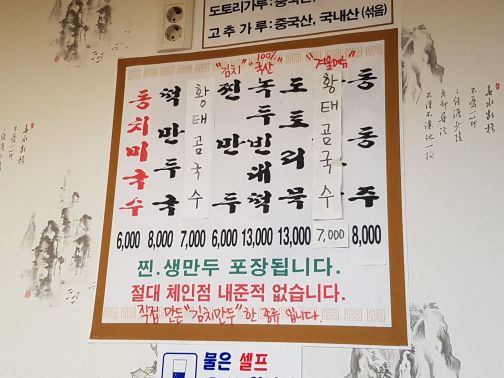 도토리가루: 중국산,
고 추 가 루 : 중국산, 국내산 (섞음)
"김치"
100%
국산
"겨울메뉴"
동치미국수
떡만두국
황태곰국수
찐만두
녹두빈대떡
도토리묵
황태곰국수
동동주
6,000 8,000 7,000 6,000 13,000 13,000 7,000 8,000
찐.생만두 포장됩니다.
절대 체인점 내준적 없습니다.
직접 만든 "김치만두" 한 종류 입니다.
물은 셀프